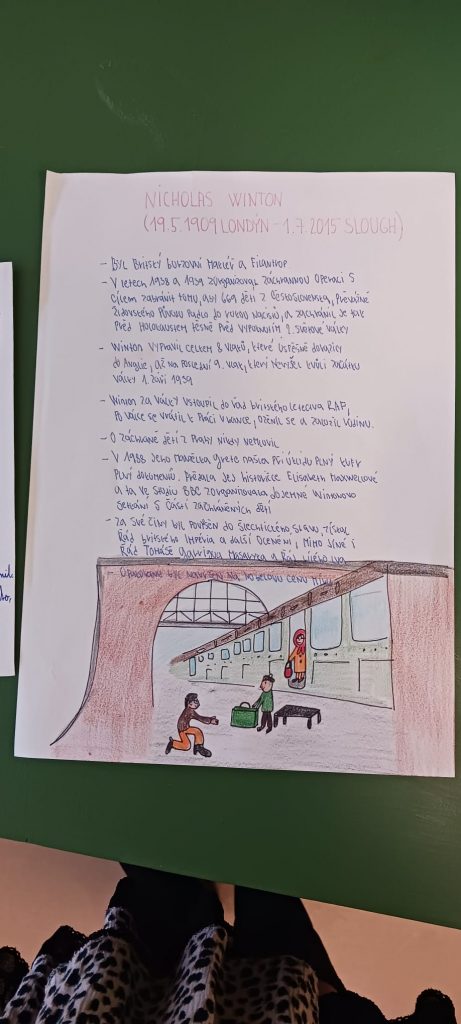 NICHOLAS WINTON
(19.5.1909 LONDÝN - 1.7.2015 SLOUGH)
- BYL BRITSKÝ BURZOVNÍ MAKLÉŘ A FILANTROP
- V LETECH 1938 A 1939 ZORGANIZOVAL ZÁCHRANNOU OPERACI S
CÍLEM ZACHRÁNIT TOMU, ABY 669 DĚTÍ Z ČESKOSLOVENSKA, PŘEVÁŽNĚ
ŽIDOVSKÉHO PŮVODU PADLO DO RUKOU NACISTŮ, A ZACHRÁNIL JE TAK
PŘED HOLOCAUSTEM TĚSNĚ PŘED VYPUKNUTÍM 2. SVĚTOVÉ VÁLKY
- WINTON VYPRAVIL CELKEM 8 VLAKŮ, KTERÉ ÚSPĚŠNĚ DORAZILY
DO ANGLIE, AŽ NA POSLEDNÍ 9. VLAK, KTERÝ NEVYJEL KVŮLI ZAČÁTKU
VÁLKY 1. ZÁŘÍ 1939
- WINTON ZA VÁLKY VSTOUPIL DO ŘAD BRITSKÉHO LETECTVA RAF,
PO VÁLCE SE VRÁTIL K PRÁCI V BANCE, OŽENIL SE A ZALOŽIL RODINU.
- O ZÁCHRANĚ DĚTÍ Z PRAHY NIKDY NEMLUVIL
- V 1988 JEHO MANŽELKA GRETE NAŠLA PŘI ÚKLIDU PLNÝ KUFR
PLNÝ DOKUMENTŮ. PŘEDALA JEJ HISTORIČCE ELISABETH MAXWELLOVÉ
A TA VE STUDIU BBC ZORGANIZOVALA DOJEMNÉ WINTONOVO
SETKÁNÍ S ČÁSTÍ ZACHRÁNĚNÝCH DĚTÍ
- ZA SVÉ ČINY BYL POVÝŠEN DO ŠLECHTICKÉHO STAVU, ZÍSKAL
ŘÁD BRITSKÉHO IMPÉRIA A DALŠÍ OCENĚNÍ, MIMO JINÉ I
ŘÁD TOMÁŠE GARRIGUA MASARYKA A ŘÁD BÍLÉHO LVA
- OPAKOVANĚ BYL NAVRŽEN NA NOBELOVU CENU MÍRU